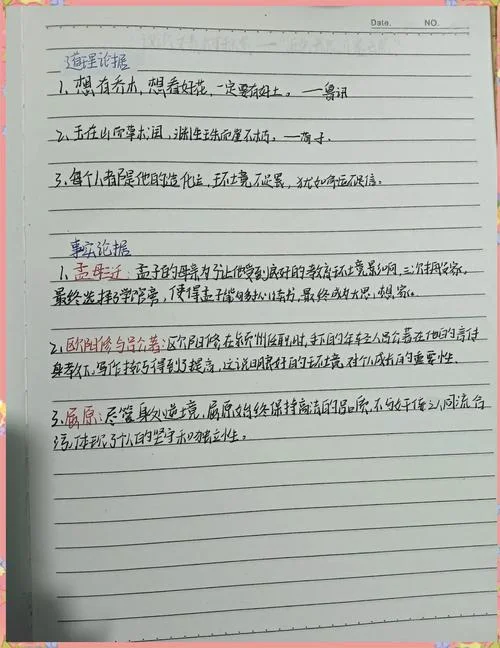 Date. NO.
道理论据
1、想有乔木，想看好花，一定要有好土。——鲁迅
2、玉在山而草木润，渊生珠而崖不枯。——荀子
3、每个人都是他自己的造化，环境不足累，
事实论据
1、孟母三迁：孟子的母亲为了让他受到良好的教育环境影响，三次搬家，
最终选择学宫旁，使得孟子能够专心读书，最终成为大思想家。
2、欧阳修与吕公著：欧阳修在颍州任职时，手下的年轻人吕公著在他的言传
身教下，写作技巧得到了提高，这说明良好的环境对个人成长的重要性。
3、屈原：尽管身处逆境，屈原始终保持高洁的品质，不与奸佞之人同流合
污，体现了个人的坚守和独立性。